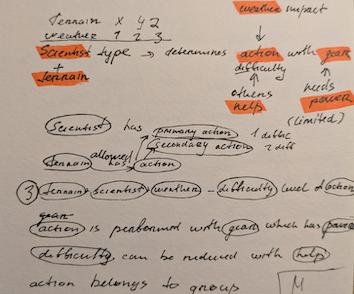 weather impact
Terrain x 4 2
weather 1 2 3
Scientist type → determines action with gear
+
Terrain
difficulty
others
help
needs
power
(limited)
Scientist has primary action 1 diffic
secondary action 2 diff
Terrain allowed has action
3 Terrain + Scientist + weather - difficulty level of action
gear
action is performed with gear which has power
difficulty can be reduced with help
action belongs to group
M